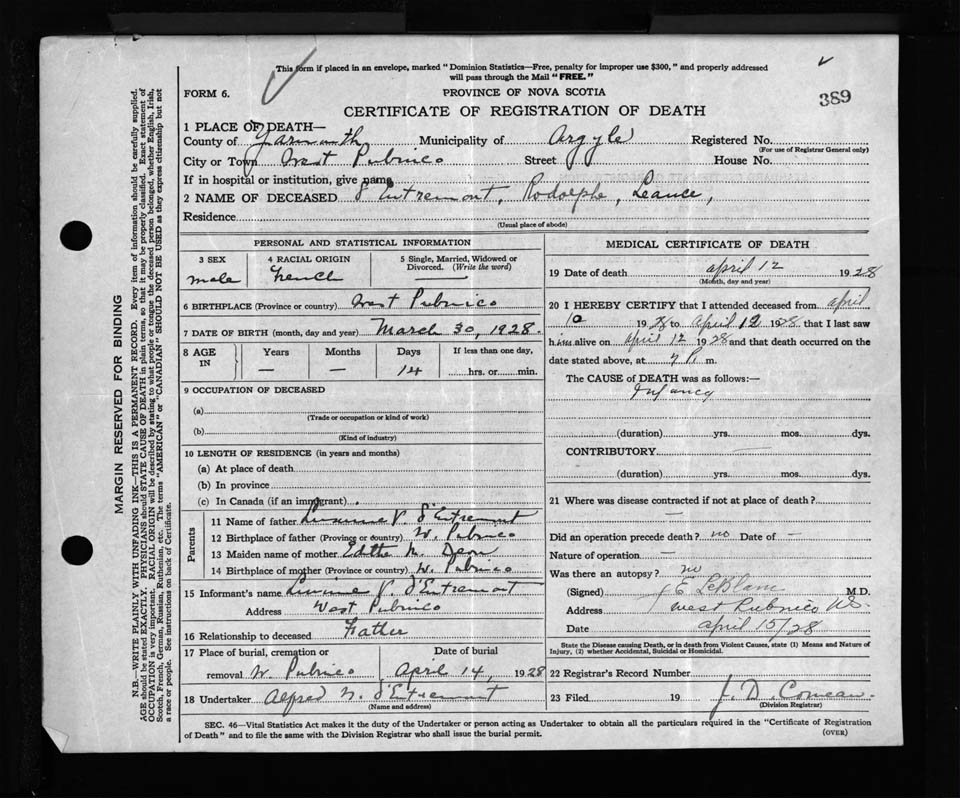 This form if placed in an envelope, marked "Dominion Statistics—Free, penalty for improper use $300," and properly addressed
will pass through the Mail "FREE."
FORM 6.
PROVINCE OF NOVA SCOTIA
389
CERTIFICATE OF REGISTRATION OF DEATH
1 PLACE OF DEATH—
County of Yarmouth Municipality of Argyle Registered No.
(For use of Registrar General only)
City or Town West Pubnico Street House No.
If in hospital or institution, give name
2 NAME OF DECEASED d'Entremont, Rodolphe, Leance,
Residence
(Usual place of abode)
PERSONAL AND STATISTICAL INFORMATION
3 SEX 4 RACIAL ORIGIN 5 Single, Married, Widowed or Divorced. (Write the word)
male French —
6 BIRTHPLACE (Province or country) West Pubnico
7 DATE OF BIRTH (month, day and year) March 30, 1928.
8 AGE IN Years Months Days If less than one day,
— — 14 hrs. or min.
9 OCCUPATION OF DECEASED
(a)
(Trade or occupation or kind of work)
(b)
(Kind of industry)
10 LENGTH OF RESIDENCE (in years and months)
(a) At place of death
(b) In province
(c) In Canada (if an immigrant)
Parents
11 Name of father V. d'Entremont
12 Birthplace of father (Province or country) W. Pubnico
13 Maiden name of mother Edithe M. Deon
14 Birthplace of mother (Province or country) W. Pubnico
15 Informant's name V. d'Entremont
Address West Pubnico
16 Relationship to deceased Father
17 Place of burial, cremation or Date of burial
removal W. Pubnico April 14, 1928
18 Undertaker Alfred d'Entremont
(Name and address)
MEDICAL CERTIFICATE OF DEATH
19 Date of death april 12 1928
(Month, day and year)
20 I HEREBY CERTIFY that I attended deceased from april
10 1928 to april 12 1928 that I last saw
him alive on april 12 1928 and that death occurred on the
date stated above, at 7 P. m.
The CAUSE of DEATH was as follows:—
Infancy
(duration) yrs. mos. dys.
CONTRIBUTORY. —
(duration) yrs. mos. dys.
21 Where was disease contracted if not at place of death?
—
Did an operation precede death? no Date of —
Nature of operation —
Was there an autopsy? no
(Signed) J E LeBlanc M.D.
Address West Pubnico NS.
Date april 15/28
State the Disease causing Death, or in death from Violent Causes, state (1) Means and Nature of
Injury, (2) whether Accidental, Suicidal or Homicidal.
22 Registrar's Record Number
23 Filed 19 J. D. Comeau.
(Division Registrar)
SEC. 46—Vital Statistics Act makes it the duty of the Undertaker or person acting as Undertaker to obtain all the particulars required in the "Certificate of Registration
of Death" and to file the same with the Division Registrar who shall issue the burial permit.
(OVER)
MARGIN RESERVED FOR BINDING
N.B.—WRITE PLAINLY WITH UNFADING INK—THIS IS A PERMANENT RECORD. Every item of information should be carefully supplied.
AGE should be stated EXACTLY. PHYSICIANS should STATE CAUSE OF DEATH in plain terms, so that it may be properly classified. Exact statement of
OCCUPATION is very important. RACIAL ORIGIN will be described by stating to what people or tongue the deceased person belonged, whether English, Irish,
Scotch, French, German, Russian, Ruthenian, etc. The terms "AMERICAN" or "CANADIAN" SHOULD NOT BE USED as they express citizenship but not
a race or people. See instructions on back of Certificate.